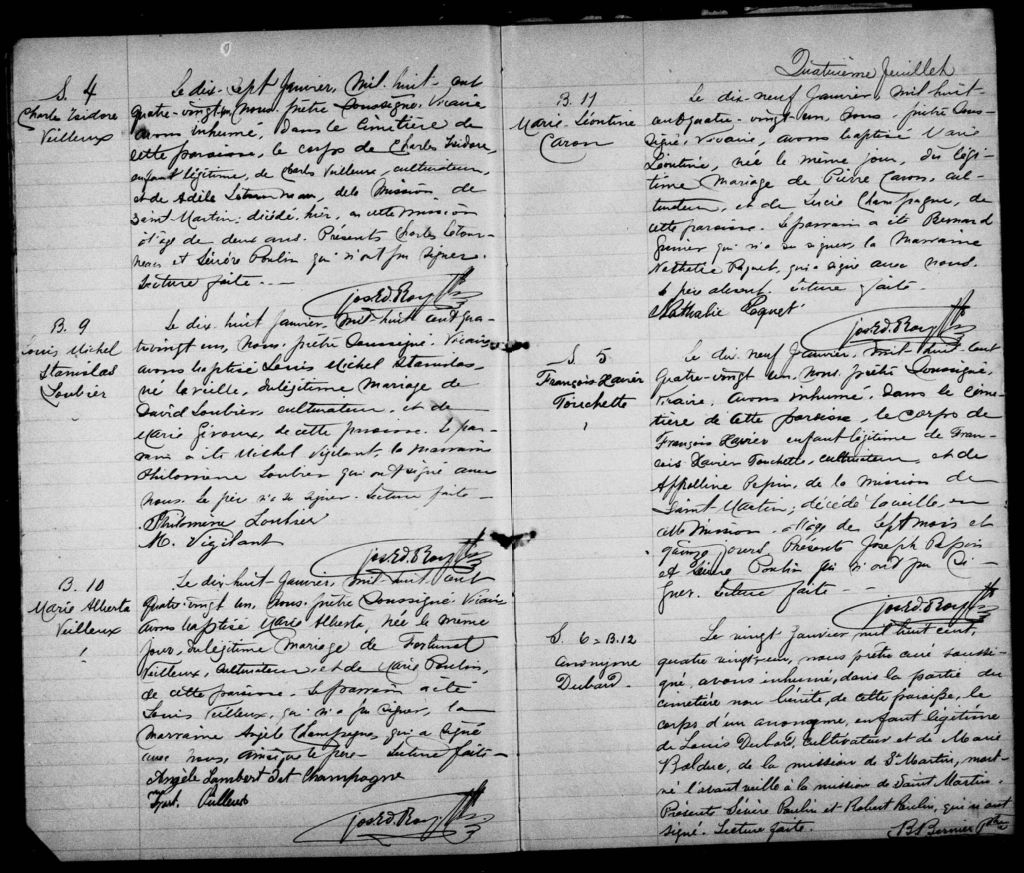 S. 4
Charles Isidore
Veilleux
Le dix-sept Janvier, mil huit-cent
quatre-vingt un, nous, prêtre soussigné, Vicaire
avons inhumé, dans le cimetière de
cette paroisse, le corps de Charles Isidore,
enfant légitime, de Charles Veilleux, cultivateur,
et de Adèle Letourneau, de la Mission de
Saint-Martin; décédé, hier, en cette mission
à l'âge de deux ans. Présents Charles Letour-
neau et Sévère Poulin qui n'ont pu signer.
Lecture faite. --
Jos. Ed. Roy Ptre
B. 9
Louis Michel
Stanislas
Loubier
Le dix-huit Janvier, mil-huit cent qua-
tre vingt un, nous, prêtre soussigné, Vicaire
avons baptisé Louis Michel Stanislas,
né la veille, du légitime mariage de
David Loubier, cultivateur, et de
Marie Giroux, de cette paroisse. Le par-
rain a été Michel Vigilant, la marraine
Philomène Loubier qui ont signé avec
nous. Le père n'a su signer. Lecture faite -
Philomène Loubier
M. Vigilant
Jos. Ed. Roy Ptre
B. 10
Marie Alberta
Veilleux
Le dix-huit Janvier, mil-huit cent
quatre-vingt un, nous prêtre soussigné Vicaire
avons baptisé Marie Alberta, née le même
jour, du légitime mariage de Fortunat
Veilleux, cultivateur et de Marie Poulin,
de cette paroisse. Le parrain a été
Louis Veilleux, qui n'a pu signer, la
marraine Angèle Champagne, qui a signé
avec nous, ainsi que le père. Lecture faite -
Angèle Lambert dit Champagne
Fort. Veilleux
Jos. Ed. Roy Ptre
Quatrième feuillet
B. 11
Marie-Léontine
Caron
Le dix-neuf Janvier, mil huit-
cent quatre-vingt-un, nous, prêtre sous-
signé, Vicaire, avons baptisé Marie
Léontine, née le même jour, du légi-
time mariage de Pierre Caron, cul-
tivateur, et de Lucie Champagne, de
cette paroisse. Le parrain a été Bernard
Grenier qui n'a su signer, la marraine
Nathalie Paquet, qui a signé avec nous.
Le père absent. Lecture faite.
Nathalie Paquet
Jos. Ed. Roy Ptre
S. 5
François Xavier
Touchette
Le dix-neuf Janvier, mil-huit-cent
quatre-vingt un, nous, prêtre soussigné,
Vicaire, avons inhumé, dans le cime-
tière de cette paroisse, le corps de
François Xavier enfant légitime de Fran-
çois Xavier Touchette, cultivateur, et de
Appolline Pepin, de la mission de
Saint-Martin; décédé la veille, en
cette mission, à l'âge de sept mois et
quinze jours. Présents Joseph Pepin
et Sévère Poulin qui n'ont pu si-
gner. Lecture faite - -
Jos. Ed. Roy Ptre
S. 6 = B. 12
Anonyme
Dubord
Le vingt Janvier mil huit cent,
quatre vingt-un, nous prêtre curé soussi-
gné, avons inhumé, dans la partie du
cimetière non bénite, de cette paroisse, le
corps d'un anonyme, enfant légitime
de Louis Dubord, cultivateur et de Marie
Bolduc, de la mission de St Martin, mort-
né l'avant veille à la mission de Saint Martin.
Présents Sévère Poulin et Robert Poulin, qui n'ont
signé. Lecture faite.
B. Bernier Ptre